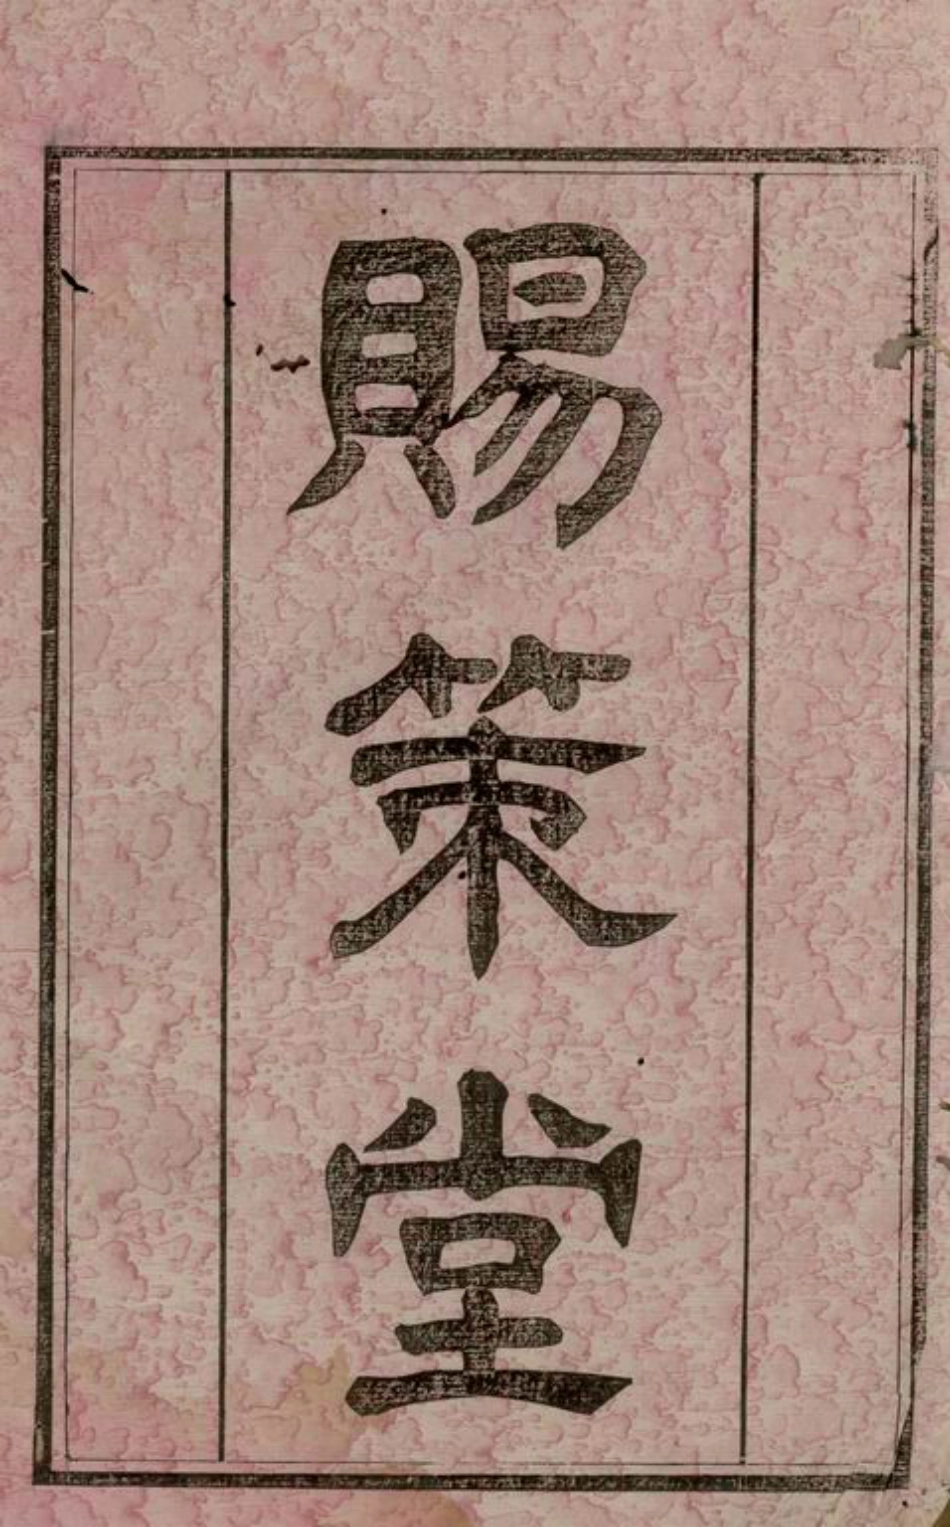 賜策堂